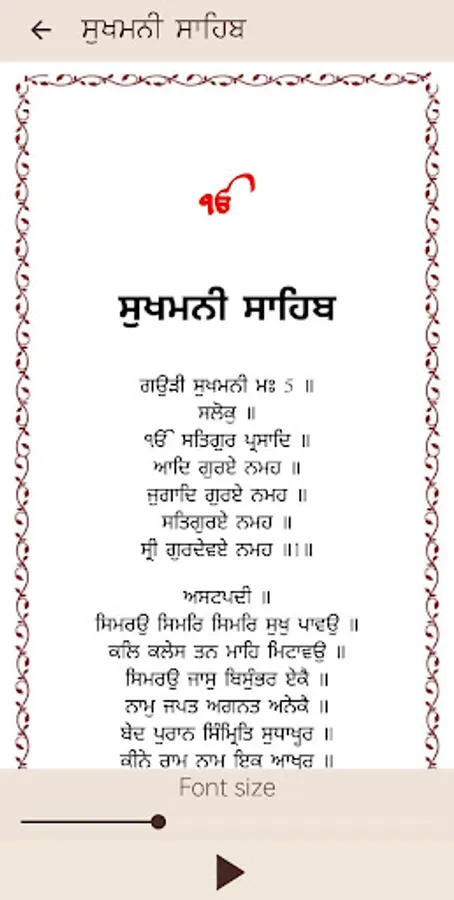 ਸੁਖਮਨੀ ਸਾਹਿਬ
ੴ
ਸੁਖਮਨੀ ਸਾਹਿਬ
ਗਉੜੀ ਸੁਖਮਨੀ ਮਃ 5 ॥
ਸਲੋਕੁ ॥
ੴ ਸਤਿਗੁਰ ਪ੍ਰਸਾਦਿ ॥
ਆਦਿ ਗੁਰਏ ਨਮਹ ॥
ਜੁਗਾਦਿ ਗੁਰਏ ਨਮਹ ॥
ਸਤਿਗੁਰਏ ਨਮਹ ॥
ਸ੍ਰੀ ਗੁਰਦੇਵਏ ਨਮਹ ॥1॥
ਅਸਟਪਦੀ ॥
ਸਿਮਰਉ ਸਿਮਰਿ ਸਿਮਰਿ ਸੁਖੁ ਪਾਵਉ ॥
ਕਲਿ ਕਲੇਸ ਤਨ ਮਾਹਿ ਮਿਟਾਵਉ ॥
ਸਿਮਰਉ ਜਾਸੁ ਬਿਸੁੰਭਰ ਏਕੈ ॥
ਨਾਮੁ ਜਪਤ ਅਗਨਤ ਅਨੇਕੈ ॥
ਬੇਦ ਪੁਰਾਨ ਸਿੰਮ੍ਰਿਤਿ ਸੁਧਾਖ੍ਹਰ ॥
ਕੀਨੇ ਰਾਮ ਨਾਮ ਇਕ ਆਖ੍ਹਰ ॥
Font size